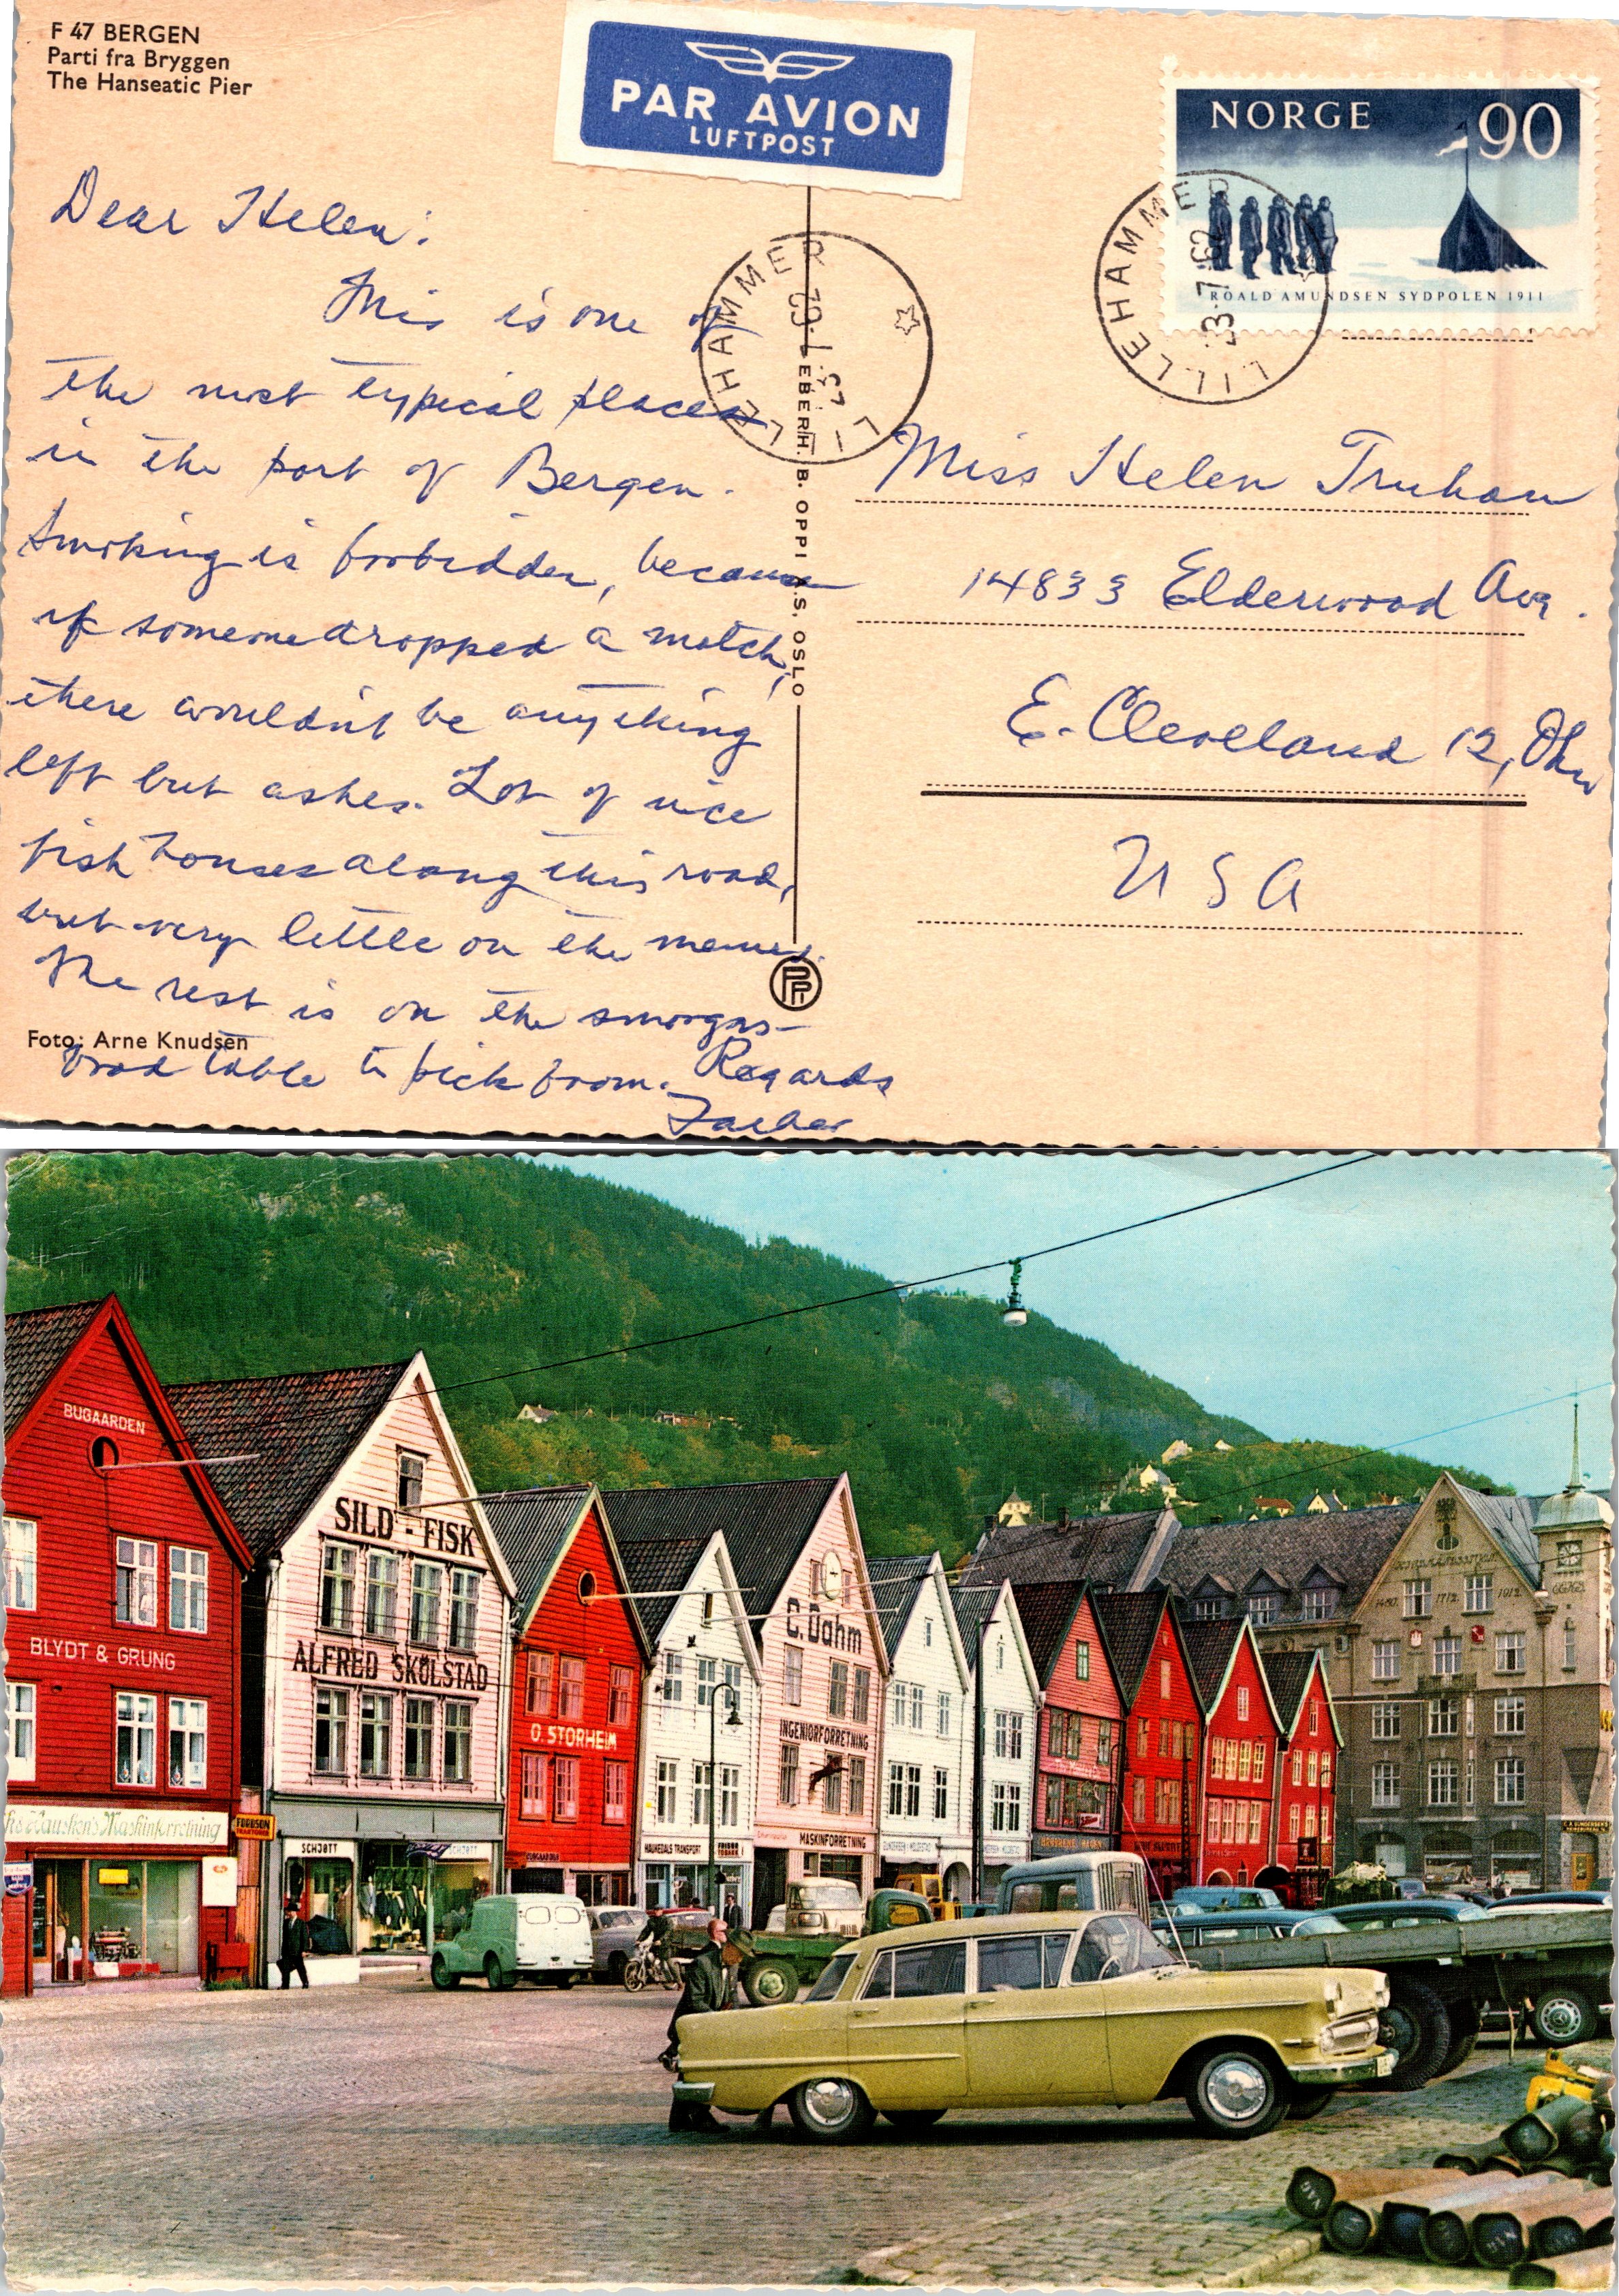 F 47 BERGEN
Parti fra Bryggen
The Hanseatic Pier
PAR AVION
LUFTPOST
NORGE 90
ROALD AMUNDSEN SYDPOLEN 1911
LILLEHAMMER
-3.7.62
LILLEHAMMER
-3.7.62
Dear Helen:
This is one of
the most typical places
in the port of Bergen.
Smoking is forbidden, because
if someone dropped a match,
there wouldn't be anything
left but ashes. Lot of nice
fish houses along this road,
but very little on the menu.
The rest is on the smorgas-
brod table to pick from. Regards
EBERH. B. OPPI A.S, OSLO
Foto: Arne Knudsen
Miss Helen Truhan
14833 Elderwood Ave.
E. Cleveland 12, Ohio
USA
BUGAARDEN
BLYDT & GRUNG
Maskinforretning
FORDSON
SILD - FISK
ALFRED SKULSTAD
SCHJØTT
SCHJØTT
O. STORHEIM
HAUKEDALS TRANSPORT
C. Dahm
INGENIØRFORRETNING
MASKINFORRETNING
1712 1912